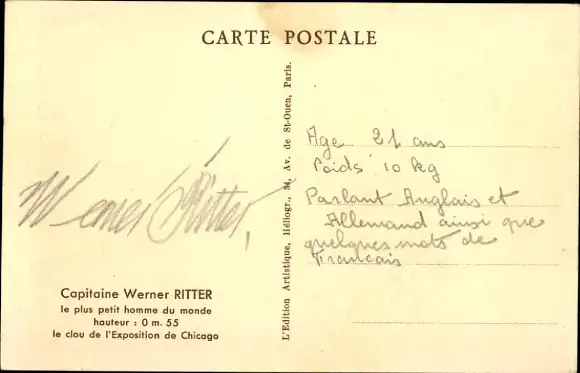 CARTE POSTALE
Werner Ritter,
Capitaine Werner RITTER
le plus petit homme du monde
hauteur : 0 m. 55
le clou de l'Exposition de Chicago
L'Edition Artistique, Héliogr., 34, Av. de St-Ouen, Paris.
Age 21 ans
Poids 10 kg
Parlant Anglais et
Allemand ainsi que
quelques mots de
Francais